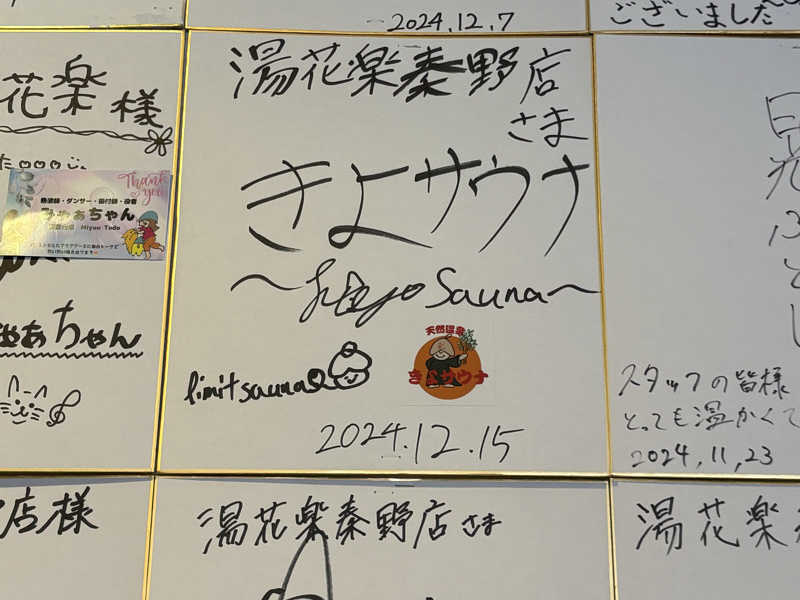 2024.12.7
ございました
花楽様
Thank you
熱波師・ダンサー・振付師・役者
みゃぁちゃん
Miyuu Todo
ちゃん
湯花楽秦野店
さま
きよサウナ
〜kiyo Sauna〜
limitsauna
天然温泉
きよサウナ
2024.12.15
スタッフの皆様
とっても温かくて
2024.11.23
店様
湯花楽秦野店さま
湯花楽